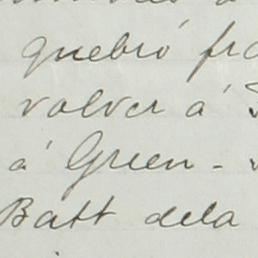 quebró
volver á
á Green-
Batt dela